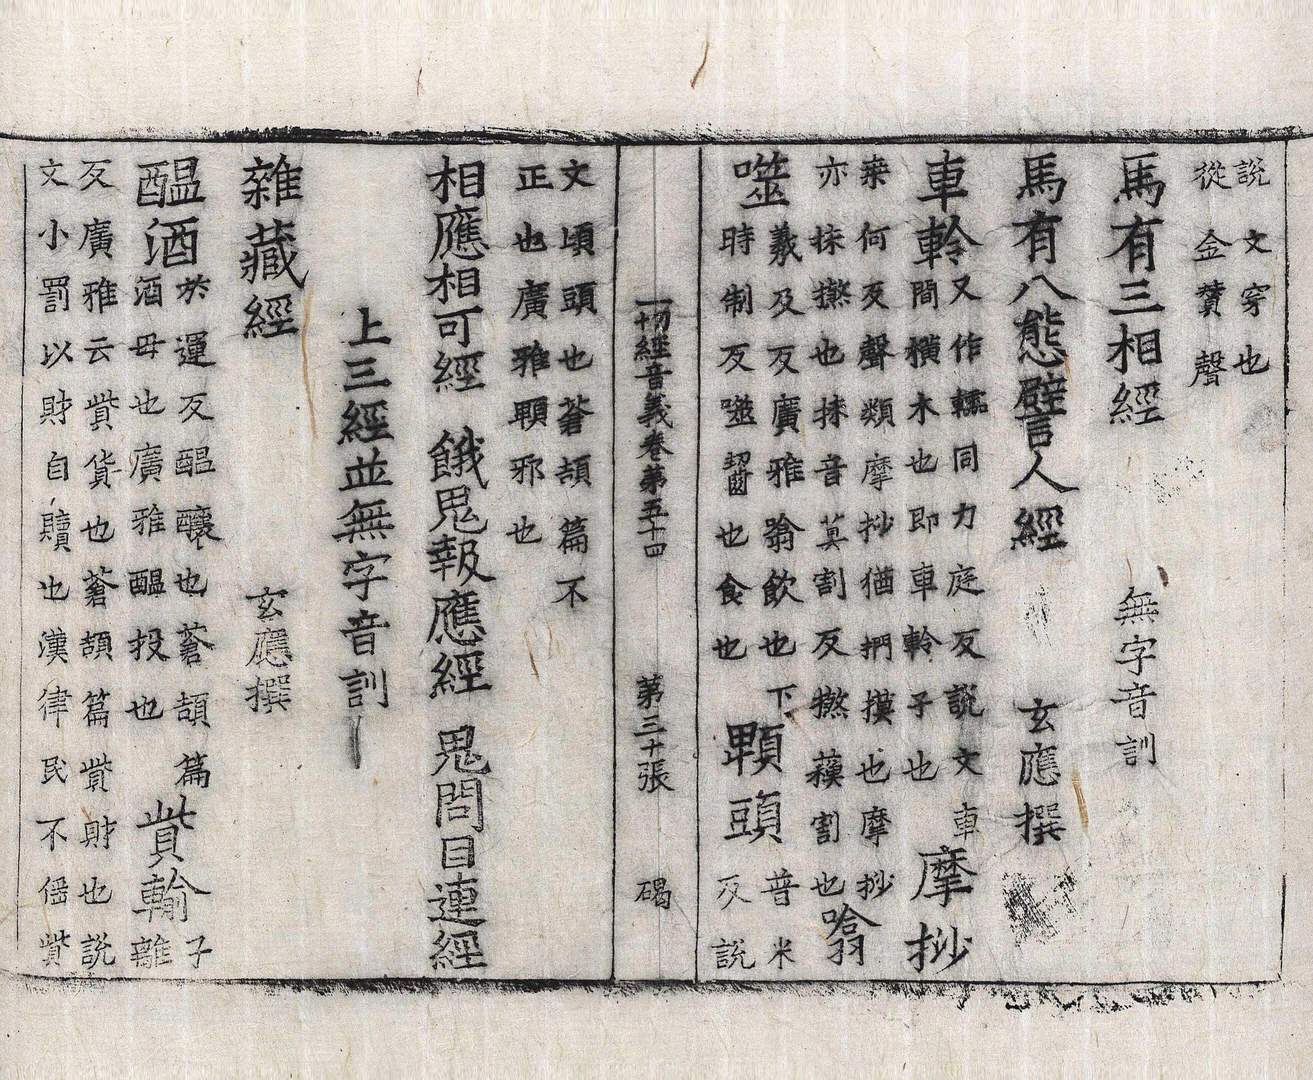 說文穿也
從金贊聲
馬有三相經 無字音訓
馬有八態譬人經 玄應撰
車軨又作轜同力庭反說文車
間橫木也即車軨子也摩抄
桒何反聲類摩抄猶捫摸也摩抄
亦抹摋也抹音莫割反摋蘓割也噏
噬羲及反廣雅噏飲也下
時制反噬齧也食也䫌頭普米
反說
文頃頭也蒼頡篇不
正也廣雅䫌邪也
相應相可經 餓鬼報應經 鬼問目連經
上三經並無字音訓
雜藏經 玄應撰
醞酒於運反醞釀也蒼頡篇
酒母也廣雅醞投也貲輸子
離
反廣雅云貲貨也蒼頡篇貲財也說
文小罰以財自贖也漢律民不傜貲
一切經音義卷第五十四 第三十張 碣